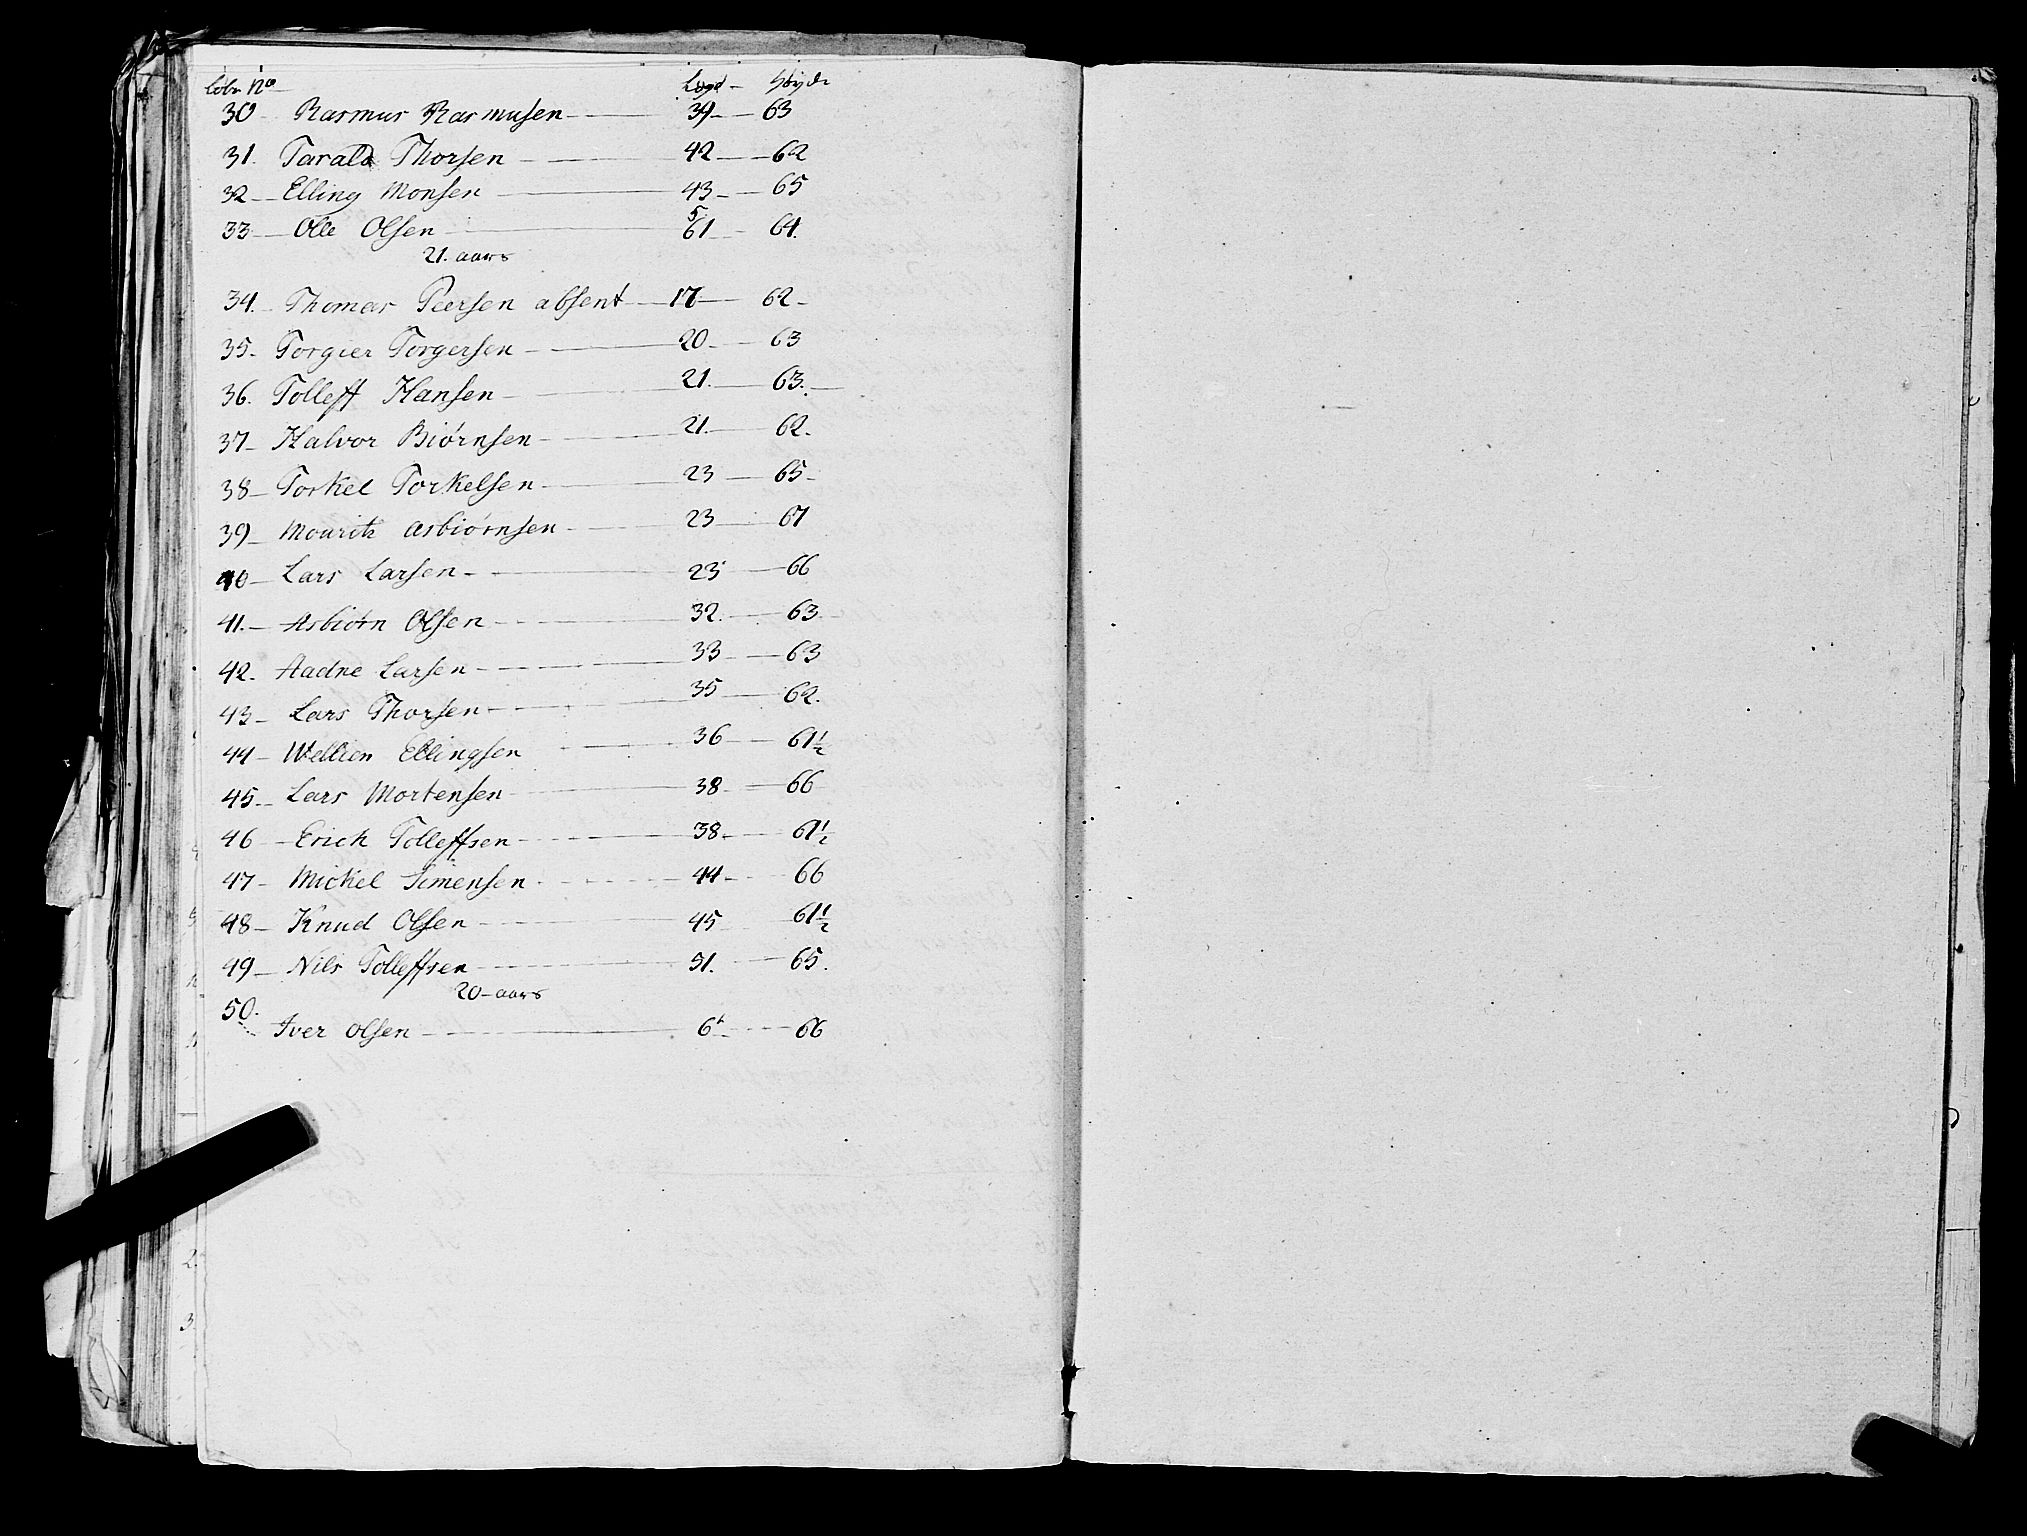 Løbe No Lægd - Høyde
30 Rasmus Rasmusen 39 63
31. Tarald Thorsen 42 62
32 Elling Monsen 43 65
33 Olle Olsen 61 64.
21. aars
34. Thomas Peersen absent 17 62
35. Torgier Torgersen 20 63
36. Tolleff Hansen 21. 63.
37 Halvor Biørnsen 21. 62.
38 Torkel Torkelsen 23 65
39 Mouritz Asbiørnsen 23 67
40 Lars Larsen 23 66
41. Asbiørn Olsen 32. 63
42. Aadne Larsen 33 63
43 Lars Thorsen 35 62.
44 Ellingsen 36 61½
45 Lars Mortensen 38 66
46 Erich Tolleffsen 38 61½
47 Mickel Simensen 44 66
48 Knud Olsen 45 61½
49 Nils Tolleffsen 51. 65.
20 aars
50.
Iver Olsen 6 66